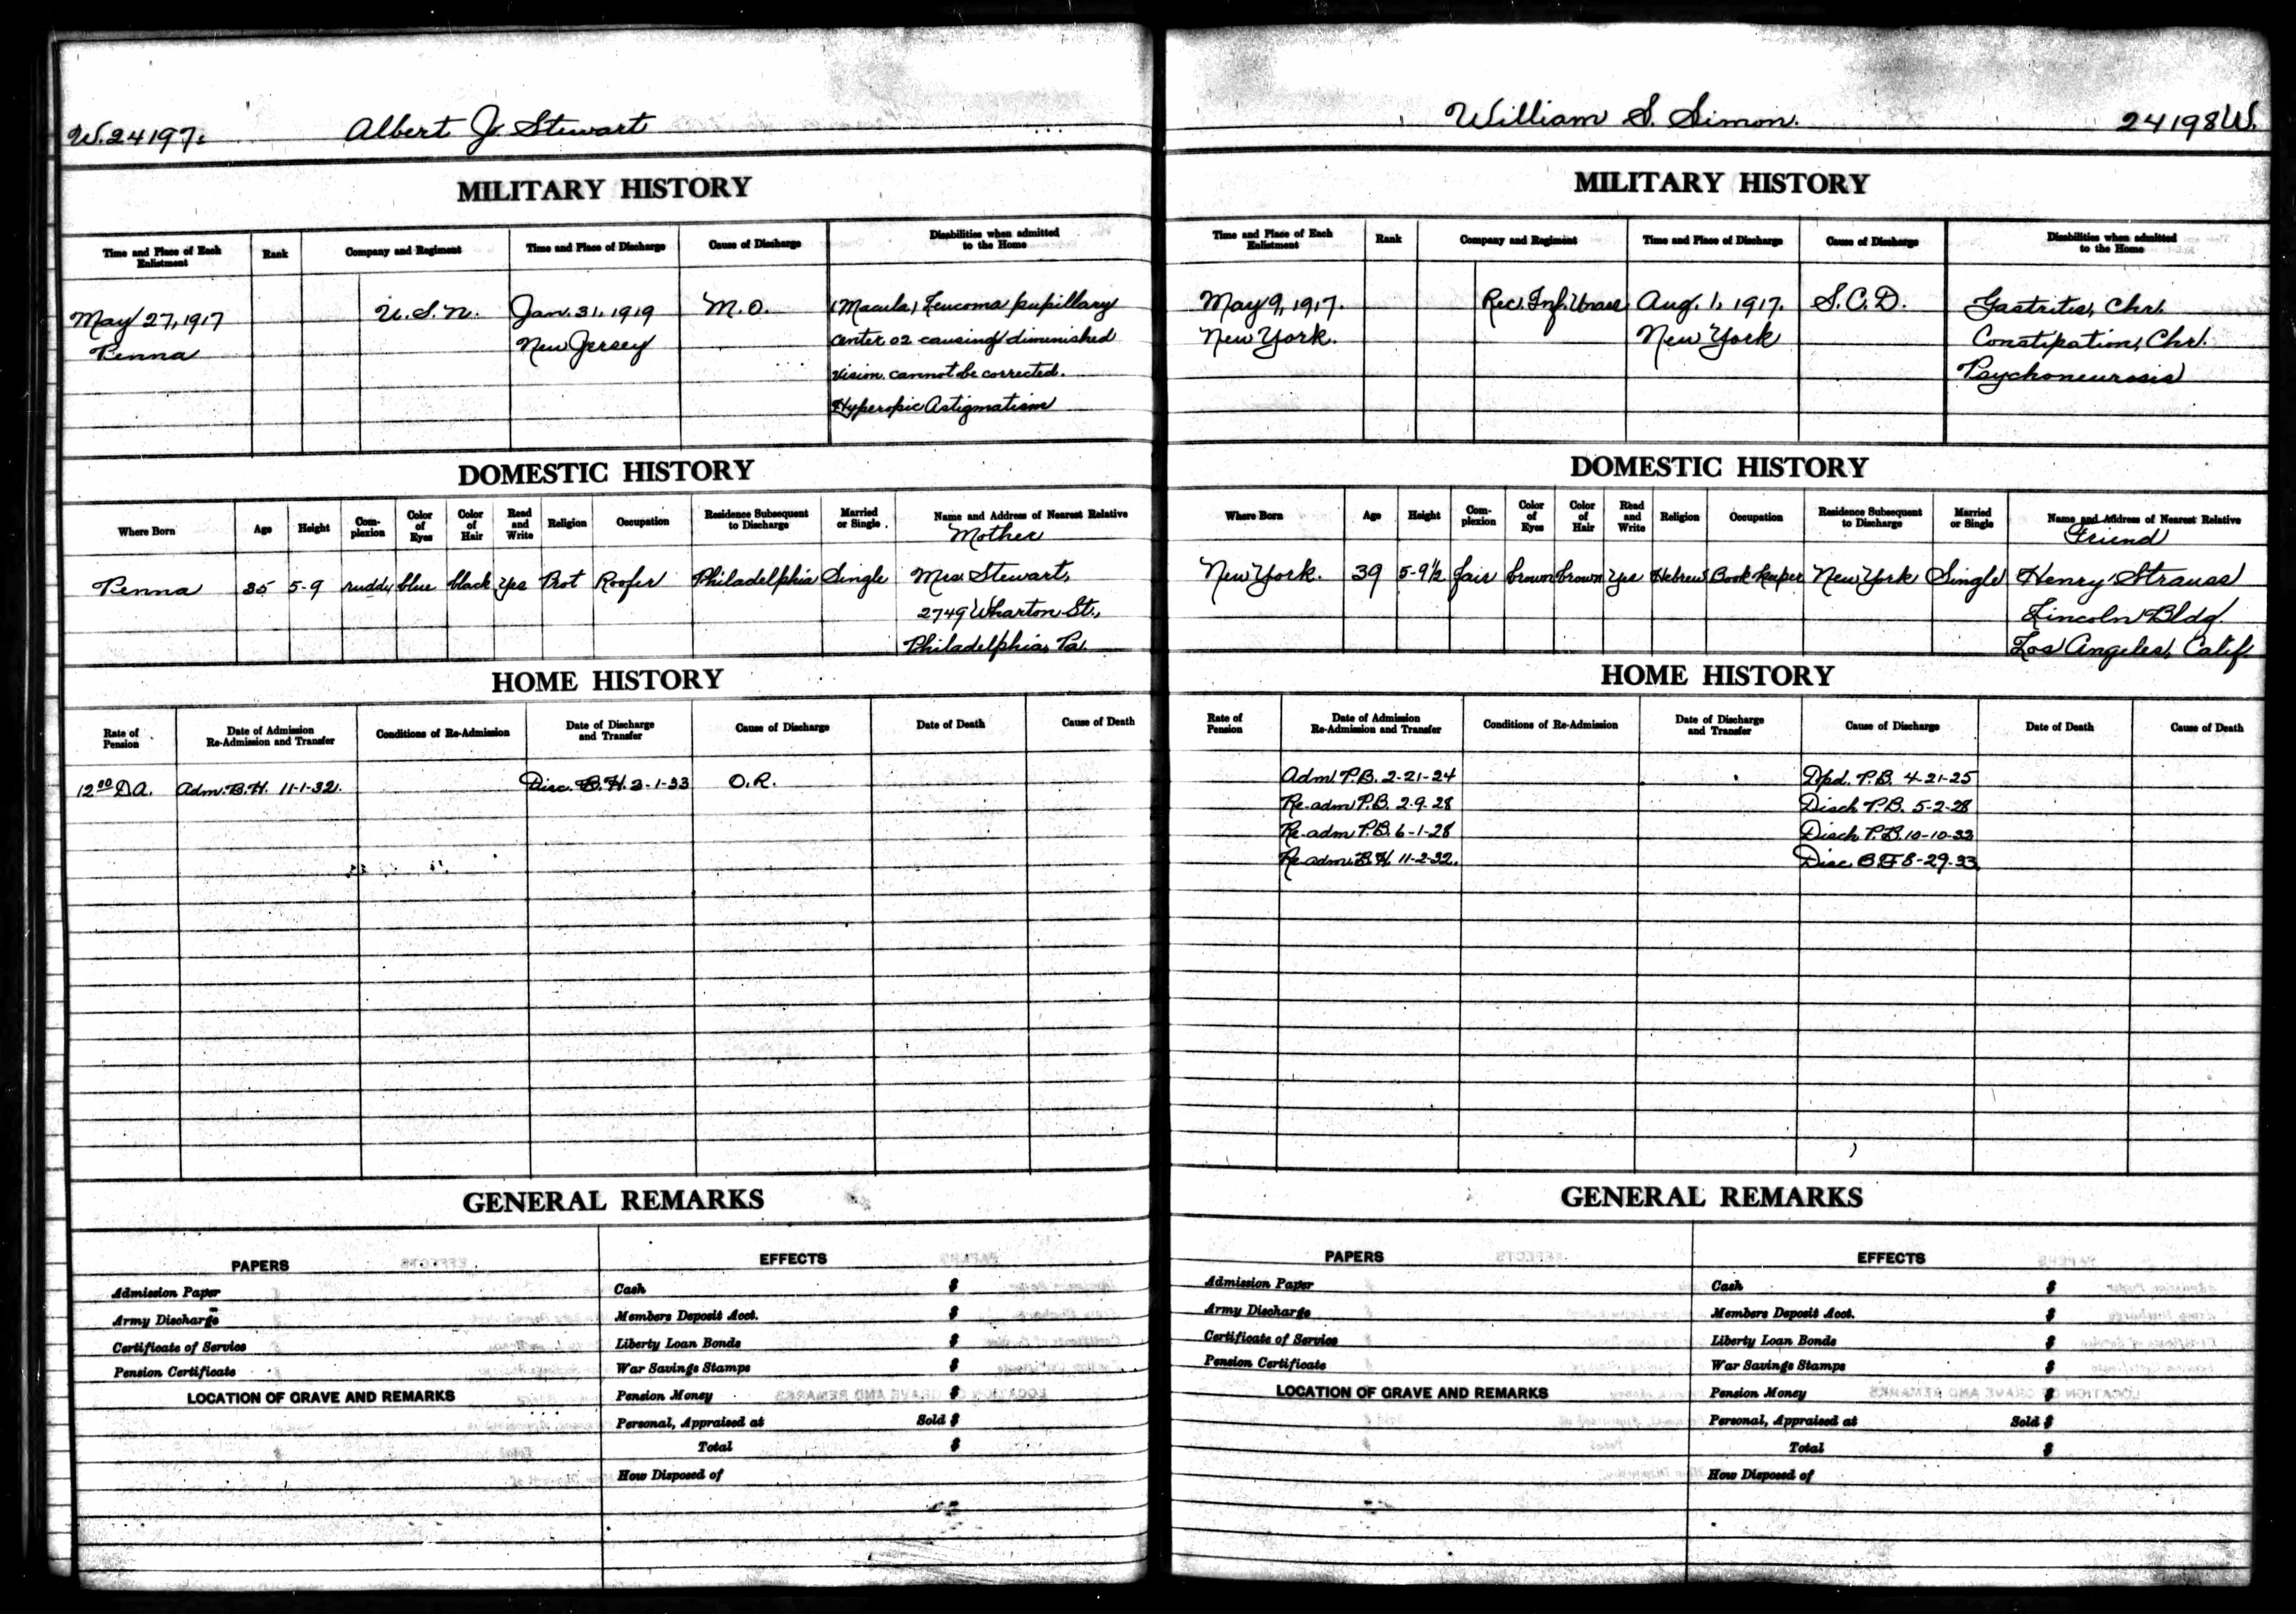 W. 24197.
Albert J. Stewart
MILITARY HISTORY
Time and Place of Each Enlistment
Rank
Company and Regiment
Time and Place of Discharge
Cause of Discharge
Disabilities when admitted to the Home
May 27, 1917
Penna
U.S.N.
Jan. 31, 1919
New Jersey
M.O.
(Macula) Leucoma pupillary
center o2 causing diminished
vision cannot be corrected.
Hyperopic Astigmatism
DOMESTIC HISTORY
Where Born
Age
Height
Com-plexion
Color of Eyes
Color of Hair
Read and Write
Religion
Occupation
Residence Subsequent to Discharge
Married or Single
Name and Address of Nearest Relative
Mother
Penna 35 5-9 ruddy blue black Yes Prot Roofer Philadelphia Single Mrs. Stewart,
2749 Wharton St.,
Philadelphia, Pa.
HOME HISTORY
Rate of Pension
Date of Admission Re-Admission and Transfer
Conditions of Re-Admission
Date of Discharge and Transfer
Cause of Discharge
Date of Death
Cause of Death
12 00 D.A. Adm. B.H. 11-1-32. Disc. B.H. 3-1-33 O.R.
GENERAL REMARKS
PAPERS
Admission Paper
Army Discharge
Certificate of Service
Pension Certificate
LOCATION OF GRAVE AND REMARKS
EFFECTS
Cash $
Members Deposit Acct. $
Liberty Loan Bonds $
War Savings Stamps $
Pension Money $
Personal, Appraised at Sold $
Total $
How Disposed of
William S. Simon.
24198 W.
MILITARY HISTORY
Time and Place of Each Enlistment
Rank
Company and Regiment
Time and Place of Discharge
Cause of Discharge
Disabilities when admitted to the Home
May 9, 1917.
New York.
Rec. Inf. Unas
Aug. 1, 1917.
New York
S.C.D.
Gastritis, Chr.
Constipation, Chr.
Psychoneurosis
DOMESTIC HISTORY
Where Born
Age
Height
Com-plexion
Color of Eyes
Color of Hair
Read and Write
Religion
Occupation
Residence Subsequent to Discharge
Married or Single
Name and Address of Nearest Relative
Friend
New York. 39 5-9½ fair brown brown Yes Hebrew Book Keeper New York Single Henry Strauss
Lincoln Bldg.
Los Angeles, Calif.
HOME HISTORY
Rate of Pension
Date of Admission Re-Admission and Transfer
Conditions of Re-Admission
Date of Discharge and Transfer
Cause of Discharge
Date of Death
Cause of Death
Adm. P.B. 2-21-24 Dpd. P.B. 4-21-25
Re-adm P.B. 2-9-28 Disch P.B. 5-2-28
Re-adm P.B. 6-1-28 Disch P.B. 10-10-33
Re-adm. B.H. 11-2-32. Disc. 8-29-33
GENERAL REMARKS
PAPERS
Admission Paper
Army Discharge
Certificate of Service
Pension Certificate
LOCATION OF GRAVE AND REMARKS
EFFECTS
Cash $
Members Deposit Acct. $
Liberty Loan Bonds $
War Savings Stamps $
Pension Money $
Personal, Appraised at Sold $
Total $
How Disposed of